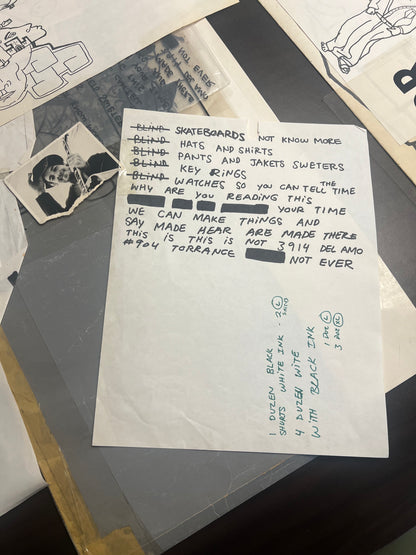 BLIND SKATEBOARDS NOT KNOW MORE
BLIND HATS AND SHIRTS
BLIND PANTS AND JAKETS SWETERS
BLIND KEY RINGS
BLIND WATCHES SO YOU CAN TELL THE TIME
WHY ARE YOU READING THIS
YOUR TIME
WE CAN MAKE THINGS AND
SAY MADE HEAR ARE MADE THERE
THIS IS THIS IS NOT 3914 DEL AMO
#904 TORRANCE NOT EVER
1 DUZEN BLACK
SHORTS WHITE INK - 2 L
4 DUZEN WITE
WITH BLACK INK
1 DOZ L
3 DOZ XL